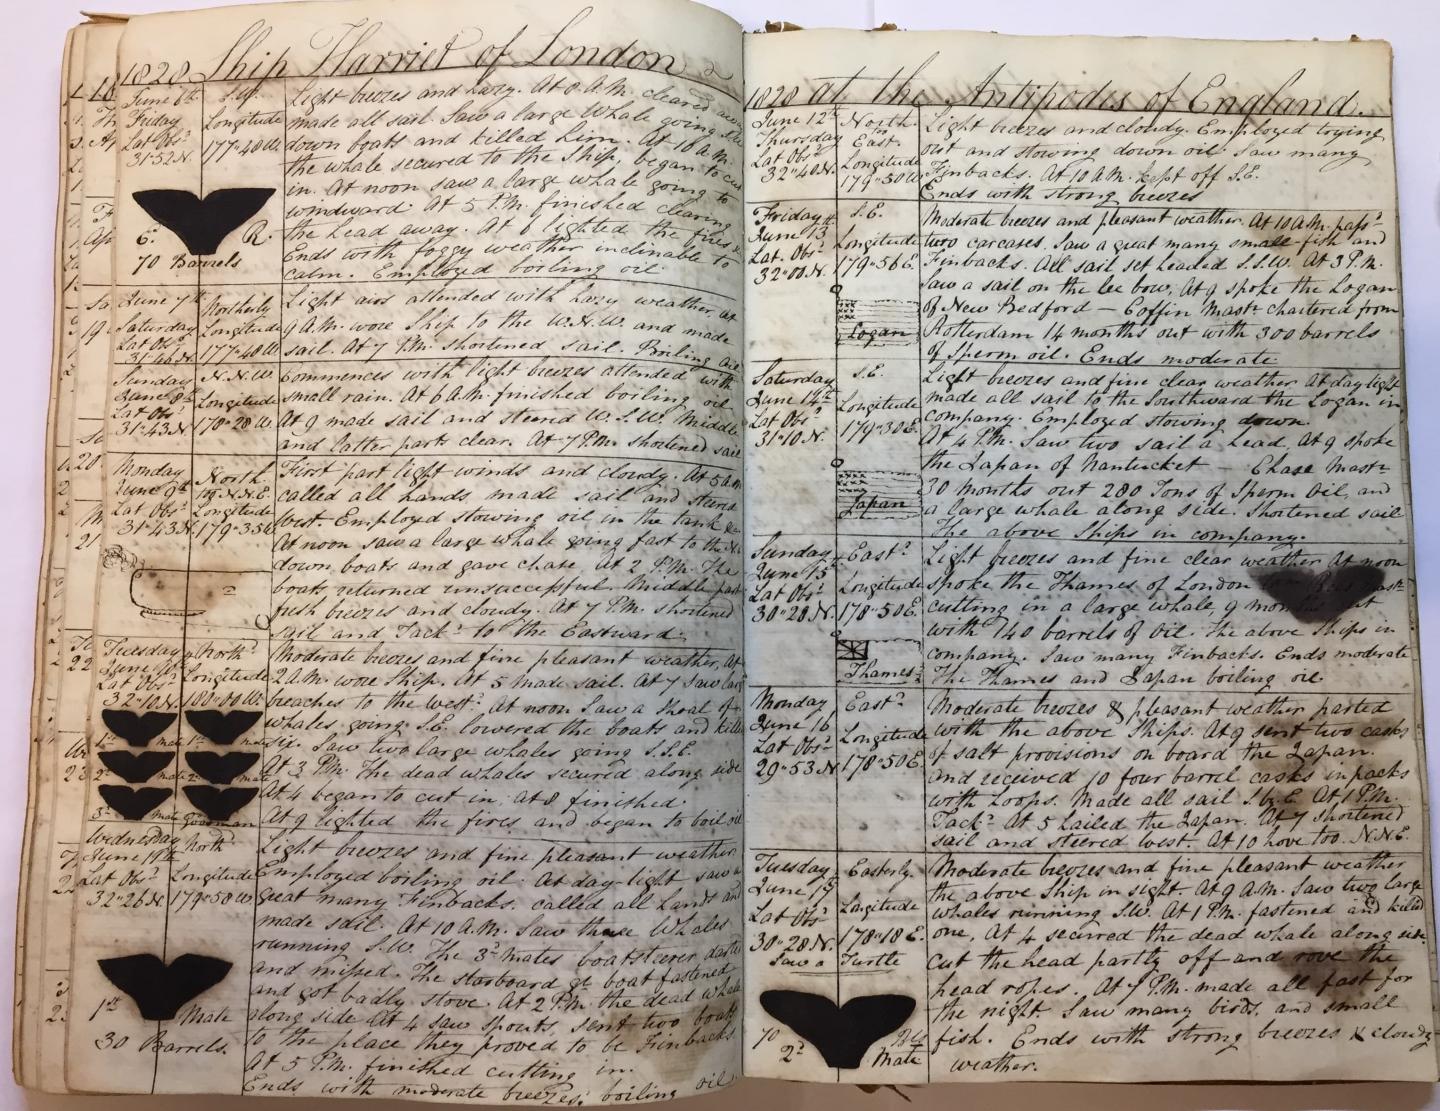 1828 Ship Harriet of London
June 6th S.W.
Friday Longitude
Lat Obs 177"48W.
31"52N
E. R.
70 Barrels
Light breezes and hazy. At 8 A.M. cleared
made all sail Saw a large Whale going
down boats and killed him. At 10 A.M.
the whale secured to the Ship, began to cut
in. At noon saw a large whale going to
windward. At 5 P.M. finished clearing
the head away. At 6 lighted the fires &
Ends with foggy weather inclinable to
calm. Employed boiling oil.
June 7th Northerly
Saturday Longitude
Lat Obs 177"40W.
31"46N
Light airs attended with hazy weather, At
9 A.M. wore Ship to the W.N.W. and made
sail. At 7 P.M. shortened sail. Boiling oil
Sunday N.N.W.
June 8th Longitude
Lat Obs 178"28W.
31"43N
Commences with light breezes attended with
small rain. At 6 A.M. finished boiling oil
At 9 made sail and steered W.S.W. Middle
and latter parts clear. At 7 P.M. shortened sail
Monday North
June 9th to N.N.E.
Lat Obs Longitude
31"43N. 179"35W
First part light winds and cloudy. At 5 A.M.
called all hands made sail and steered
West. Employed stowing oil in the tank &c
At noon saw a large whale going fast to the
down boats and gave chase. At 2 P.M. The
boats returned unsuccessful. Middle part
fresh breezes and cloudy. At 7 P.M. shortened
sail and Tack'd to the Eastward.
Tuesday North
June 10th Longitude
Lat Obs 180"00W.
32"10N
1st mate 1st mate
2d mate 2d mate
3d mate
Moderate breezes and fine pleasant weather, At
2 A.M. wore Ship. At 5 Made sail. At 7 Saw large
breaches to the west. At noon Saw a Shoal of
whales going S.E. lowered the boats and killed
six. Saw two large whales going S.S.E.
At 3 P.M. The dead whales secured along side
At 4 began to cut in, at 8 finished.
At 9 lighted the fires and began to boil oil
Wednesday North
June 11th Longitude
Lat Obs 179"58W
32"26N
1st Mate
30 Barrels.
Light breezes and fine pleasant weather
Employed boiling oil. At day light saw a
great many Finbacks. called all hands and
made sail. At 10 A.M. Saw three Whales
running S.W. The 3d mates boatsteerer darted
and missed. The starboard boat fastened
and got badly stove. At 2 P.M. the dead whale
along side At 4 saw spouts, sent two boats
to the place they proved to be Finbacks.
At 5 P.M. finished cutting in.
Ends with moderate breezes; boiling oil.
1828 at the Antipodes of England.
June 12th North
Thursday East.
Lat Obs Longitude
32"40N. 179"50W
Light breezes and cloudy. Employed trying
out and stowing down oil. Saw many
Finbacks. At 10 A.M. kept off S.E.
Ends with strong breezes
Friday S.E.
June 13th Longitude
Lat. Obs 179"56E.
32"00N.
Logan
Moderate breezes and pleasant weather. At 10 A.M. pass'd
two carcases. Saw a great many small fish and
Finbacks. All sail set headed S.S.W. At 3 P.M.
Saw a sail on the lee bow. At 9 spoke the Logan
of New Bedford — Coffin Mastr chartered from
Rotterdam 14 months out with 300 barrels
of Sperm oil. Ends moderate.
Saturday S.E.
June 14th Longitude
Lat Obs 179"30E.
31"10N.
Japan
Light breezes and fine clear weather. At day light
made all sail to the Southward the Logan in
company. Employed stowing down
At 4 P.M. Saw two sail a head. At 9 spoke
the Japan of Nantucket — Chase Mastr
30 Months out 280 Tons of Sperm Oil, and
a large whale along side. Shortened sail
The above Ships in company.
Sunday East
June 15th Longitude
Lat Obs 178"50E.
30"28N.
Thames
Light breezes and fine clear weather At noon
spoke the Thames of London
cutting in a large whale, 9 months out
with 140 barrels of Oil. The above Ships in
company. Saw many Finbacks. Ends moderate
The Thames and Japan boiling oil.
Monday East
June 16 Longitude
Lat Obs 178"50E.
29"53N
Moderate breezes & pleasant weather parted
with the above Ships. At 9 sent two casks
of salt provisions on board the Japan.
and received 10 four barrel casks in packs
with hoops. Made all sail S.b.E. At 1 P.M.
Tack'd At 5 hailed the Japan. At 7 shortened
sail and steered west. At 10 hove too. N.N.E.
Tuesday Easterly
June 17th Longitude
Lat Obs 178"18E.
30"28N.
Saw a Turtle
70
2d Mate
Moderate breezes and fine pleasant weather
the above Ship in sight. At 9 A.M. Saw two large
whales running S.W. At 1 P.M. fastened and killed
one, At 4 secured the dead whale along side.
cut the head partly off and rove the
head ropes. At 7 P.M. made all fast for
the night Saw many birds, and small
fish. Ends with strong breezes & cloudy
weather.